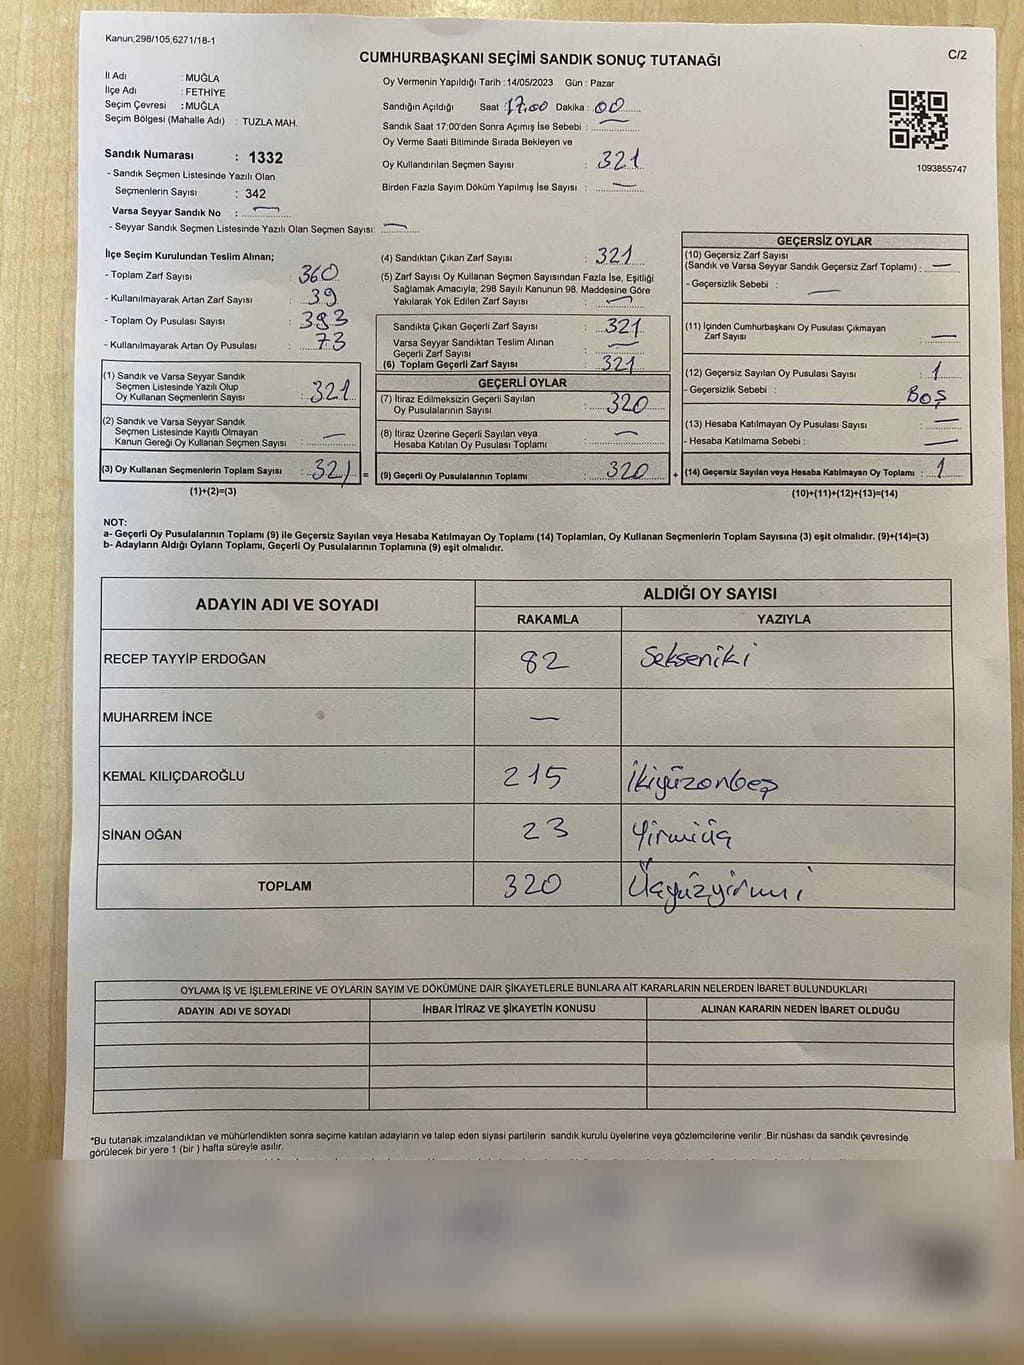 Kanun;298/105;6271/18-1
CUMHURBAŞKANI SEÇİMİ SANDIK SONUÇ TUTANAĞI
C/2
İl Adı : MUĞLA
İlçe Adı : FETHİYE
Seçim Çevresi : MUĞLA
Seçim Bölgesi (Mahalle Adı) : TUZLA MAH.
Sandık Numarası : 1332
- Sandık Seçmen Listesinde Yazılı Olan
Seçmenlerin Sayısı : 342
Varsa Seyyar Sandık No : —
- Seyyar Sandık Seçmen Listesinde Yazılı Olan Seçmen Sayısı: —
Oy Vermenin Yapıldığı Tarih : 14/05/2023 Gün : Pazar
Sandığın Açıldığı Saat : 17.00 Dakika : 00
Sandık Saat 17:00'den Sonra Açımış İse Sebebi : —
Oy Verme Saati Bitiminde Sırada Bekleyen ve
Oy Kullandırılan Seçmen Sayısı : 321
Birden Fazla Sayım Döküm Yapılmış İse Sayısı : —
1093855747
İlçe Seçim Kurulundan Teslim Alınan;
- Toplam Zarf Sayısı : 360
- Kullanılmayarak Artan Zarf Sayısı : 39
- Toplam Oy Pusulası Sayısı : 393
- Kullanılmayarak Artan Oy Pusulası : 73
(1) Sandık ve Varsa Seyyar Sandık
Seçmen Listesinde Yazılı Olup
Oy Kullanan Seçmenlerin Sayısı : 321
(2) Sandık ve Varsa Seyyar Sandık
Seçmen Listesinde Kayıtlı Olmayan
Kanun Gereği Oy Kullanan Seçmen Sayısı : —
(3) Oy Kullanan Seçmenlerin Toplam Sayısı : 321 =
(1)+(2)=(3)
(4) Sandıktan Çıkan Zarf Sayısı : 321
(5) Zarf Sayısı Oy Kullanan Seçmen Sayısından Fazla İse, Eşitliği
Sağlamak Amacıyla; 298 Sayılı Kanunun 98. Maddesine Göre
Yakılarak Yok Edilen Zarf Sayısı : —
Sandıkta Çıkan Geçerli Zarf Sayısı : 321
Varsa Seyyar Sandıktan Teslim Alınan
Geçerli Zarf Sayısı : —
(6) Toplam Geçerli Zarf Sayısı : 321
GEÇERLİ OYLAR
(7) İtiraz Edilmeksizin Geçerli Sayılan
Oy Pusulalarının Sayısı : 320
(8) İtiraz Üzerine Geçerli Sayılan veya
Hesaba Katılan Oy Pusulası Toplamı : —
(9) Geçerli Oy Pusulalarının Toplamı : 320 +
GEÇERSİZ OYLAR
(10) Geçersiz Zarf Sayısı
(Sandık ve Varsa Seyyar Sandık Geçersiz Zarf Toplamı) : —
- Geçersizlik Sebebi : —
(11) İçinden Cumhurbaşkanı Oy Pusulası Çıkmayan
Zarf Sayısı : —
(12) Geçersiz Sayılan Oy Pusulası Sayısı : 1
- Geçersizlik Sebebi : Boş
(13) Hesaba Katılmayan Oy Pusulası Sayısı : —
- Hesaba Katılmama Sebebi : —
(14) Geçersiz Sayılan veya Hesaba Katılmayan Oy Toplamı : 1
(10)+(11)+(12)+(13)=(14)
NOT:
a- Geçerli Oy Pusulalarının Toplamı (9) ile Geçersiz Sayılan veya Hesaba Katılmayan Oy Toplamı (14) Toplamları, Oy Kullanan Seçmenlerin Toplam Sayısına (3) eşit olmalıdır. (9)+(14)=(3)
b- Adayların Aldığı Oyların Toplamı, Geçerli Oy Pusulalarının Toplamına (9) eşit olmalıdır.
ADAYIN ADI VE SOYADI
ALDIĞI OY SAYISI
RAKAMLA YAZIYLA
RECEP TAYYİP ERDOĞAN 82 Sekseniki
MUHARREM İNCE —
KEMAL KILIÇDAROĞLU 215 İkiyüzonbeş
SİNAN OĞAN 23 Yirmiüç
TOPLAM 320 Üçyüzyirmi
OYLAMA İŞ VE İŞLEMLERİNE VE OYLARIN SAYIM VE DÖKÜMÜNE DAİR ŞİKAYETLERLE BUNLARA AİT KARARLARIN NELERDEN İBARET BULUNDUKLARI
ADAYIN ADI VE SOYADI İHBAR İTİRAZ VE ŞİKAYETİN KONUSU ALINAN KARARIN NEDEN İBARET OLDUĞU
*Bu tutanak imzalandıktan ve mühürlendikten sonra seçime katılan adayların ve talep eden siyasi partilerin sandık kurulu üyelerine veya gözlemcilerine verilir .Bir nüshası da sandık çevresinde
görülecek bir yere 1 (bir ) hafta süreyle asılır.